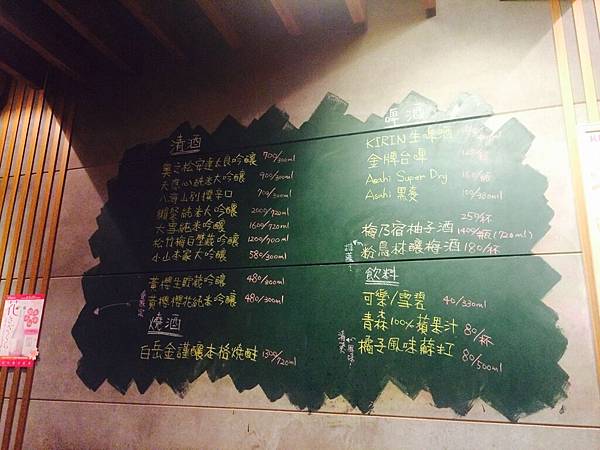 清酒
奧之松安達太良吟釀 700/300ml
天鷹心純米大吟釀 900/300ml
八海山別撰辛口 700/300ml
獺祭純米大吟釀 2000/720ml
大雪純米吟釀 1600/720ml
松竹梅白壁藏吟釀 1200/700ml
小山本家大吟釀 580/300ml
黃櫻生貯藏吟釀 480/300ml
黃櫻櫻花純米吟釀 480/300ml
燒酒
白岳金謹釀本格燒酎 1300/720ml
啤酒
KIRIN 生啤酒
金牌台啤
Asahi Super Dry
Asahi 黑麥
250/杯
梅乃宿柚子酒 1400/瓶(720ml)
粉鳥林釀梅酒 180/杯
飲料
可樂/雪碧 40/330ml
青森100%蘋果汁 80/杯
橘子風味蘇打 80/500ml